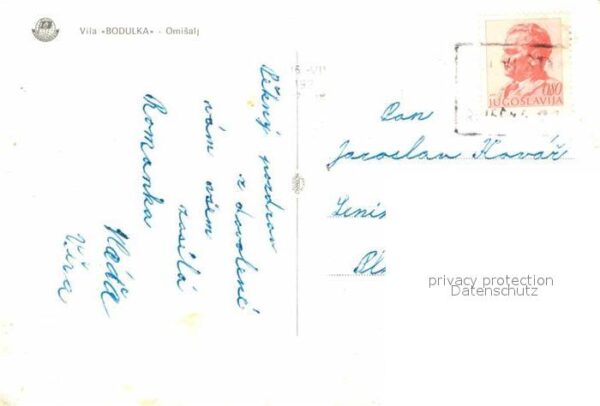 Vila «BODULKA» - Omišalj
Pěkný pozdrav
z dovolené
vám všem
zasílá
Romanka
Naďa
Věra
0.80
JUGOSLAVIJA
Pan
Jaroslav Kovář
Lenis
privacy protection
Datenschutz